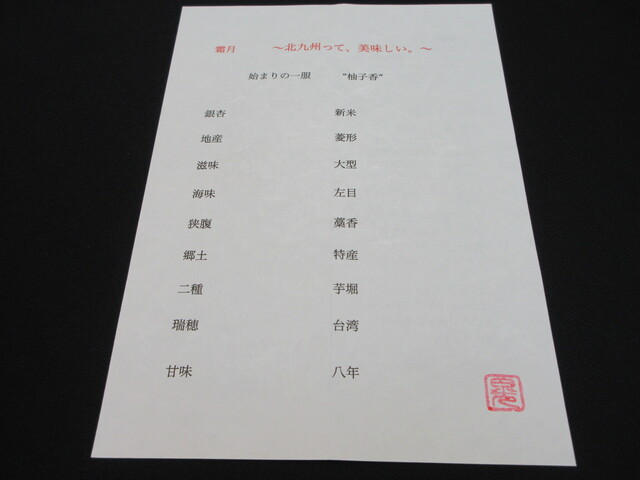 霜月　～北九州って、美味しい。～
始まりの一服　"柚子香"
銀杏　新米
地産　菱形
滋味　大型
海味　左目
狭腹　藁香
郷土　特産
二種　芋堀
瑞穂　台湾
甘味　八年